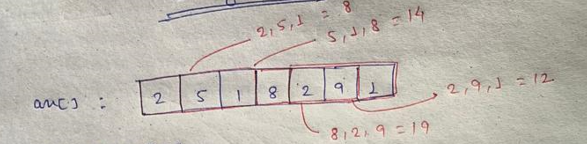 2,5,1 = 8
5,1,8 = 14
arr[] : 2 5 1 8 2 9 1
2,9,1 = 12
8,2,9 = 19